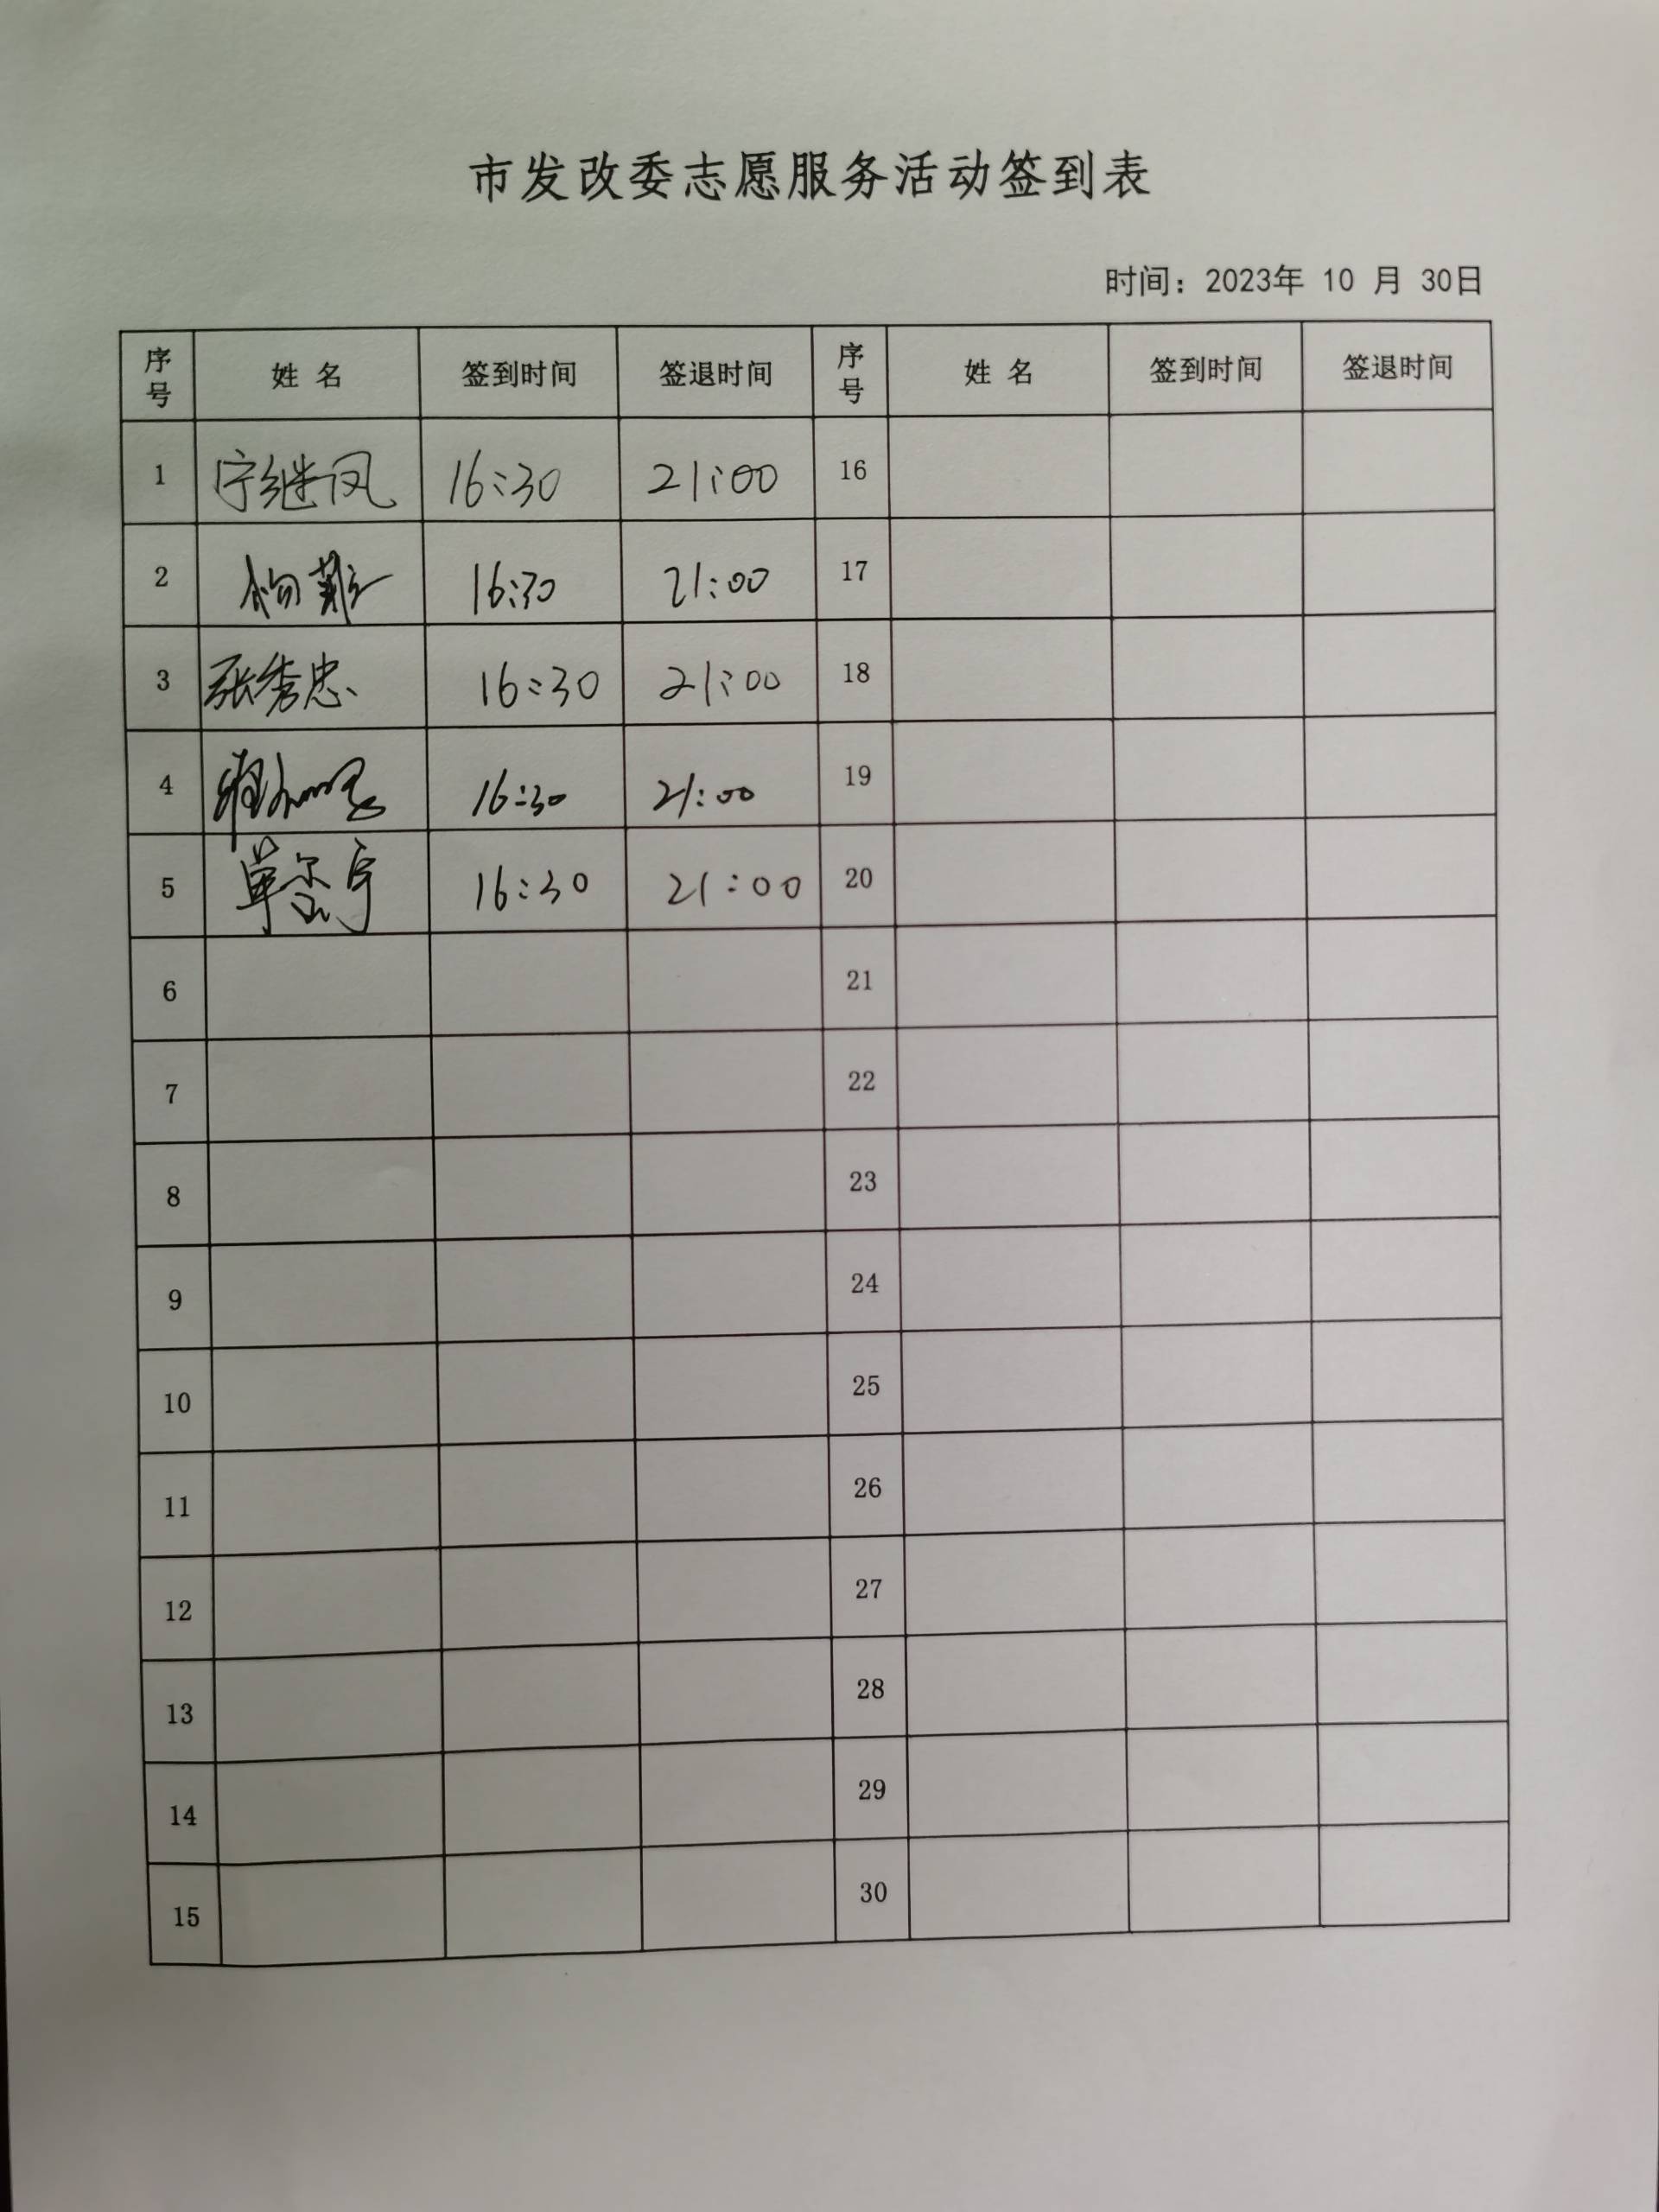 市发改委志愿服务活动签到表
时间：2023年 10 月 30日
序号 姓 名 签到时间 签退时间 序号 姓 名 签到时间 签退时间
1 宁继凤 16:30 21:00 16
2 16:30 21:00 17
3 张秀忠 16:30 21:00 18
4 16:30 21:00 19
5 单 宇 16:30 21:00 20
6 21
7 22
8 23
9 24
10 25
11 26
12 27
13 28
14 29
15 30